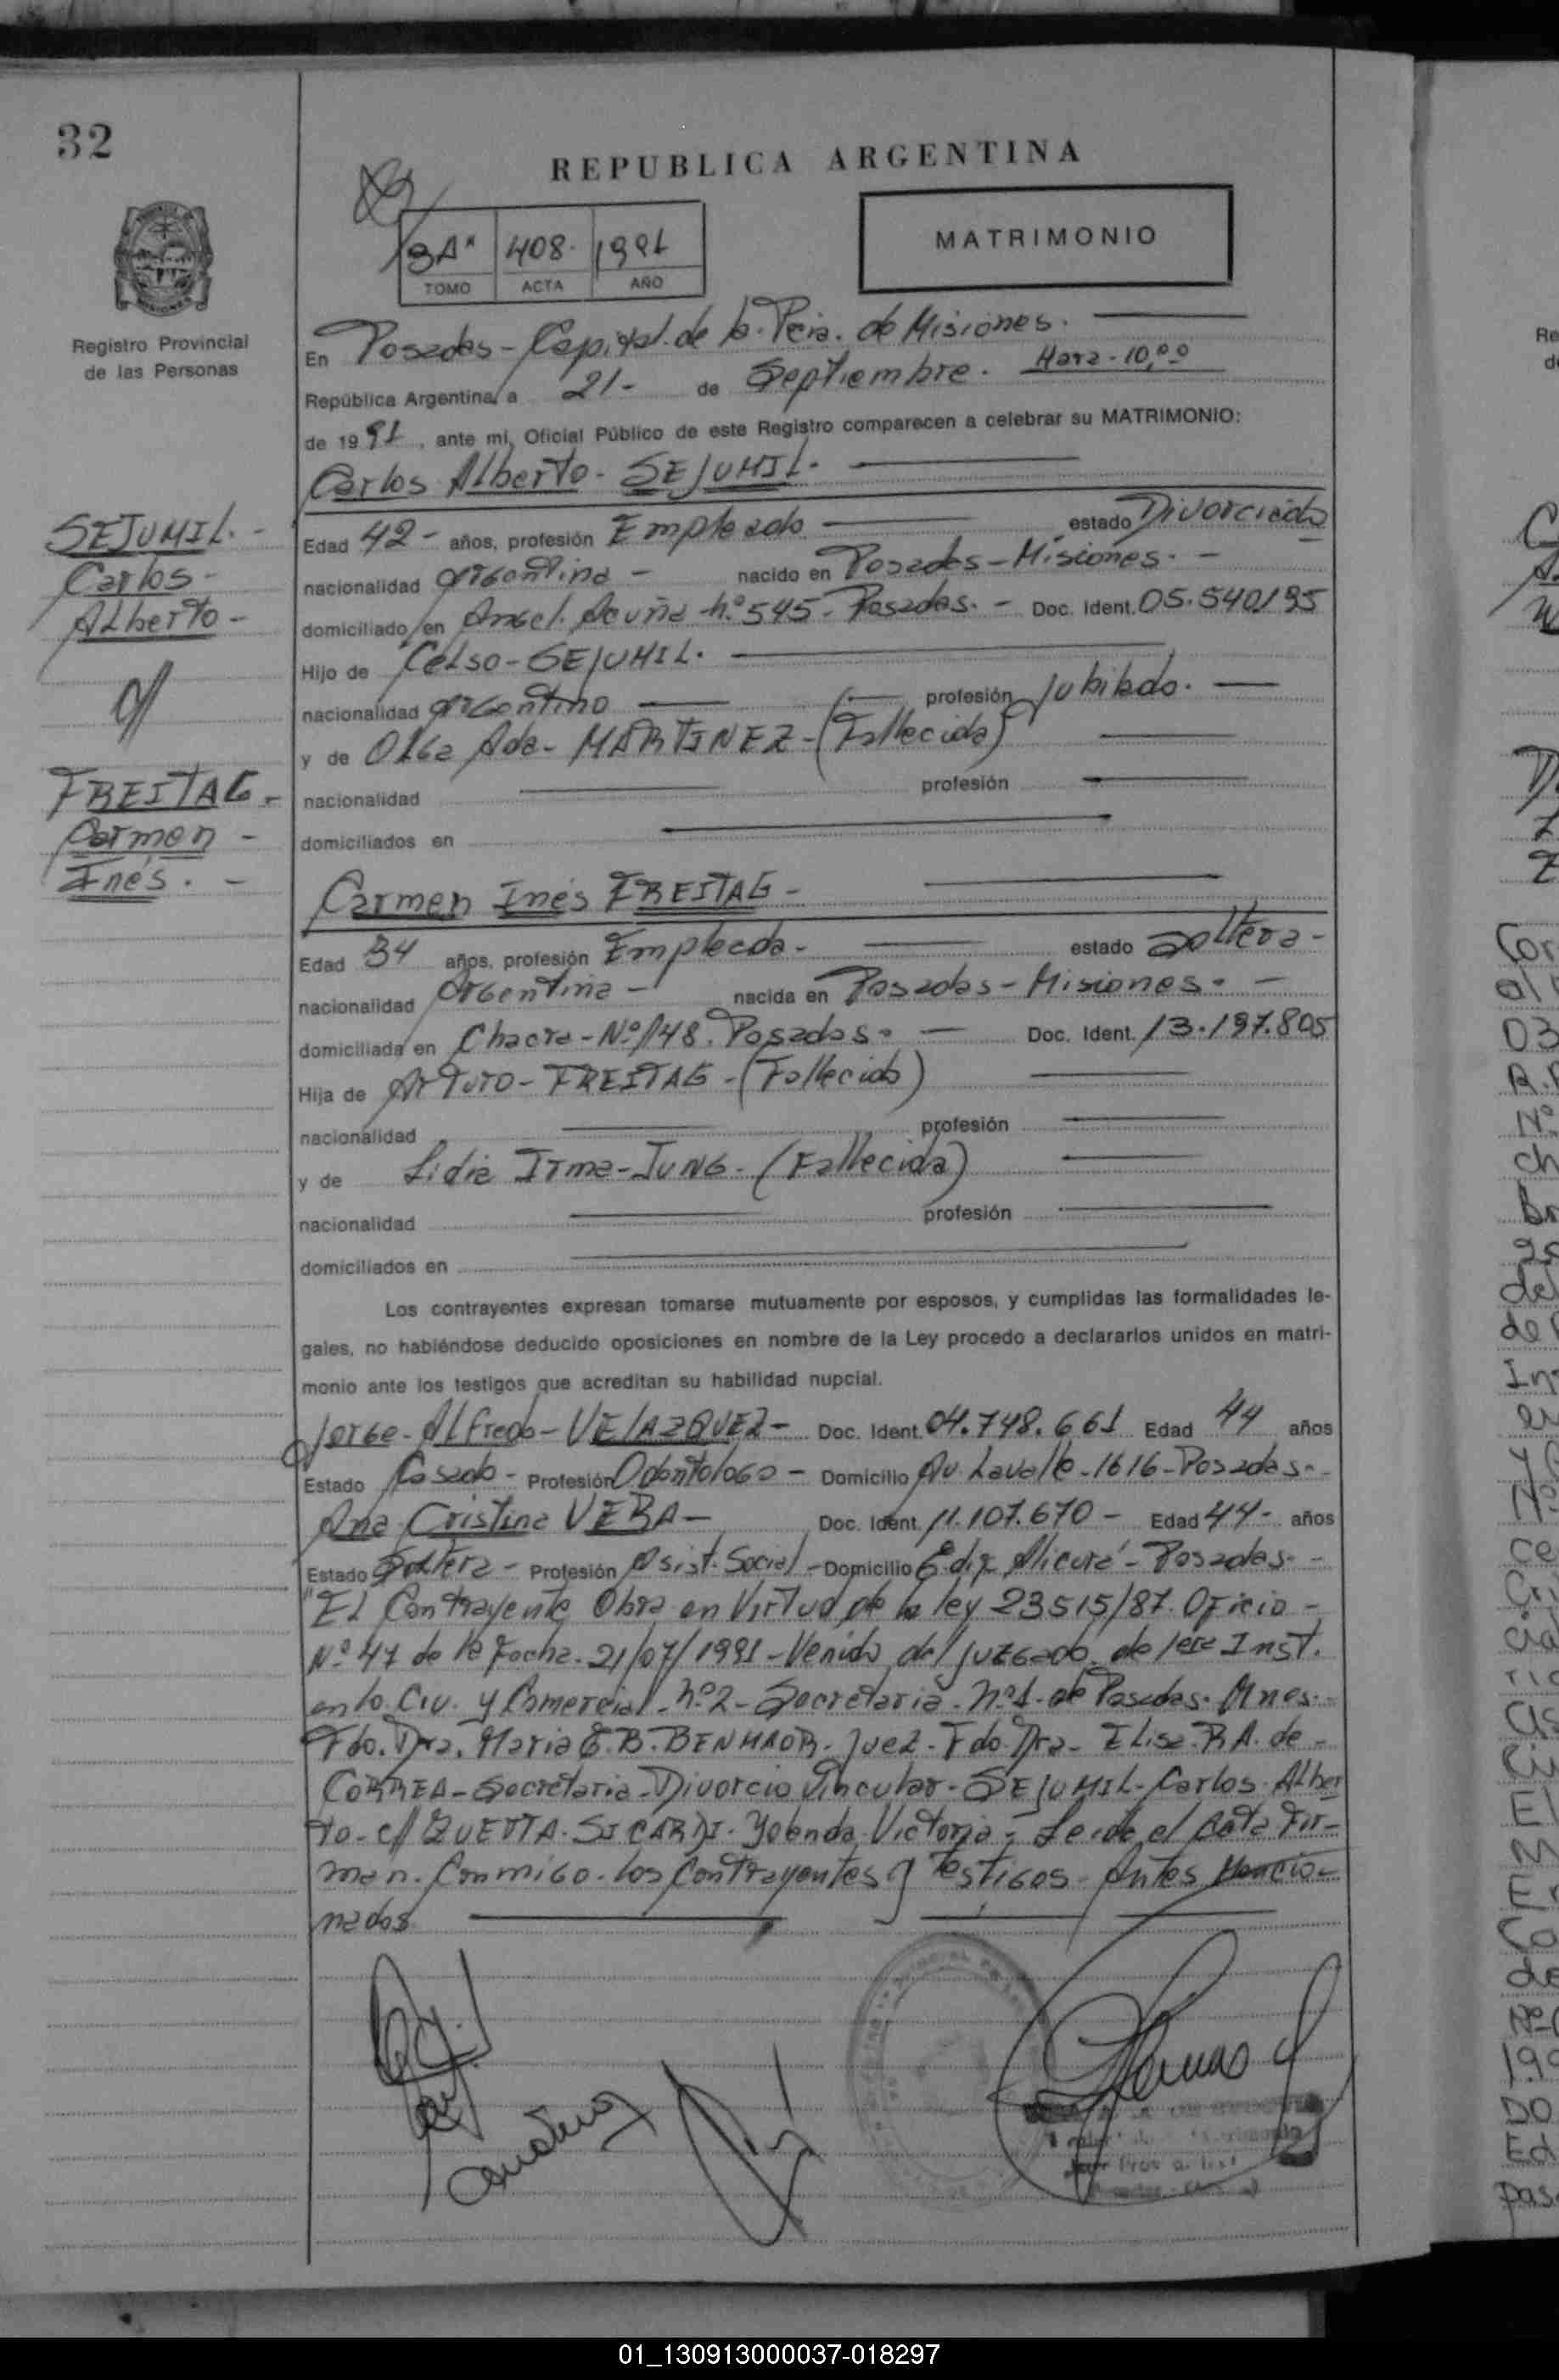 32
REPUBLICA ARGENTINA
3A" 408. 1991
TOMO ACTA AÑO
MATRIMONIO
Registro Provincial
de las Personas
En Posadas - Capital. de la. Pcia. de Misiones.
República Argentina, a 21- de Septiembre. Hora - 10,00
de 1991, ante mi, Oficial Público de este Registro comparecen a celebrar su MATRIMONIO:
Carlos Alberto - SEJUMIL.
SEJUMIL. -
Carlos -
Alberto -
Edad 42 - años, profesión Empleado estado Divorciado
nacionalidad argentina - nacido en Posadas - Misiones. -
domiciliado en Angel. Acuña n.º 545 - Posadas. - Doc. Ident. 05.540195
Hijo de Celso - SEJUMIL.
nacionalidad argentino profesión Jubilado.
y de Olga Ada - MARTINEZ - (Fallecida)
nacionalidad profesión
domiciliados en
FREITAG. -
Carmen -
Inés. -
Carmen Inés FREITAG -
Edad 34 años, profesión Empleada - estado soltera -
nacionalidad Argentina - nacida en Posadas - Misiones. -
domiciliada en Chacra - Nº 148. Posadas. - Doc. Ident. 13.197.805
Hija de Arturo - FREITAG - (Fallecido)
nacionalidad profesión
y de Lidia Irma - JUNG - (Fallecida)
nacionalidad profesión
domiciliados en
Los contrayentes expresan tomarse mutuamente por esposos, y cumplidas las formalidades le-
gales, no habiéndose deducido oposiciones en nombre de la Ley procedo a declararlos unidos en matri-
monio ante los testigos que acreditan su habilidad nupcial.
Jorge - Alfredo - VELAZQUEZ - Doc. Ident. 04.748.661 Edad 44 años
Estado Casado - Profesión Odontologo - Domicilio Av. Lavalle - 1616 - Posadas -
Ana Cristina VERA - Doc. Ident. 11.107.670 - Edad 44 - años
Estado Soltera - Profesión Asist. Social - Domicilio Edif. Alicurá - Posadas. -
"El Contrayente Obra en Virtud de la ley 23515/87. Oficio -
Nº 47 de la Fecha. 21/07/1991 - Venido del Juzgado. de 1era Inst.
en lo Civ. y Comercial. nº 2 - Secretaria - nº 1 - de Posadas. Mnes. -
Fdo. Dra. Maria E. B. BENMAOR - Juez - Fdo. Dra - Elisa. R A. de -
CORREA - Secretaria - Divorcio Vincular - SEJUMIL - Carlos - Alber
to - c/ SICARDI - Yolanda Victoria - Leida el Acta Fir-
man. Conmigo. los Contrayentes y Testigos - Antes Mencio-
nados
01_130913000037-018297